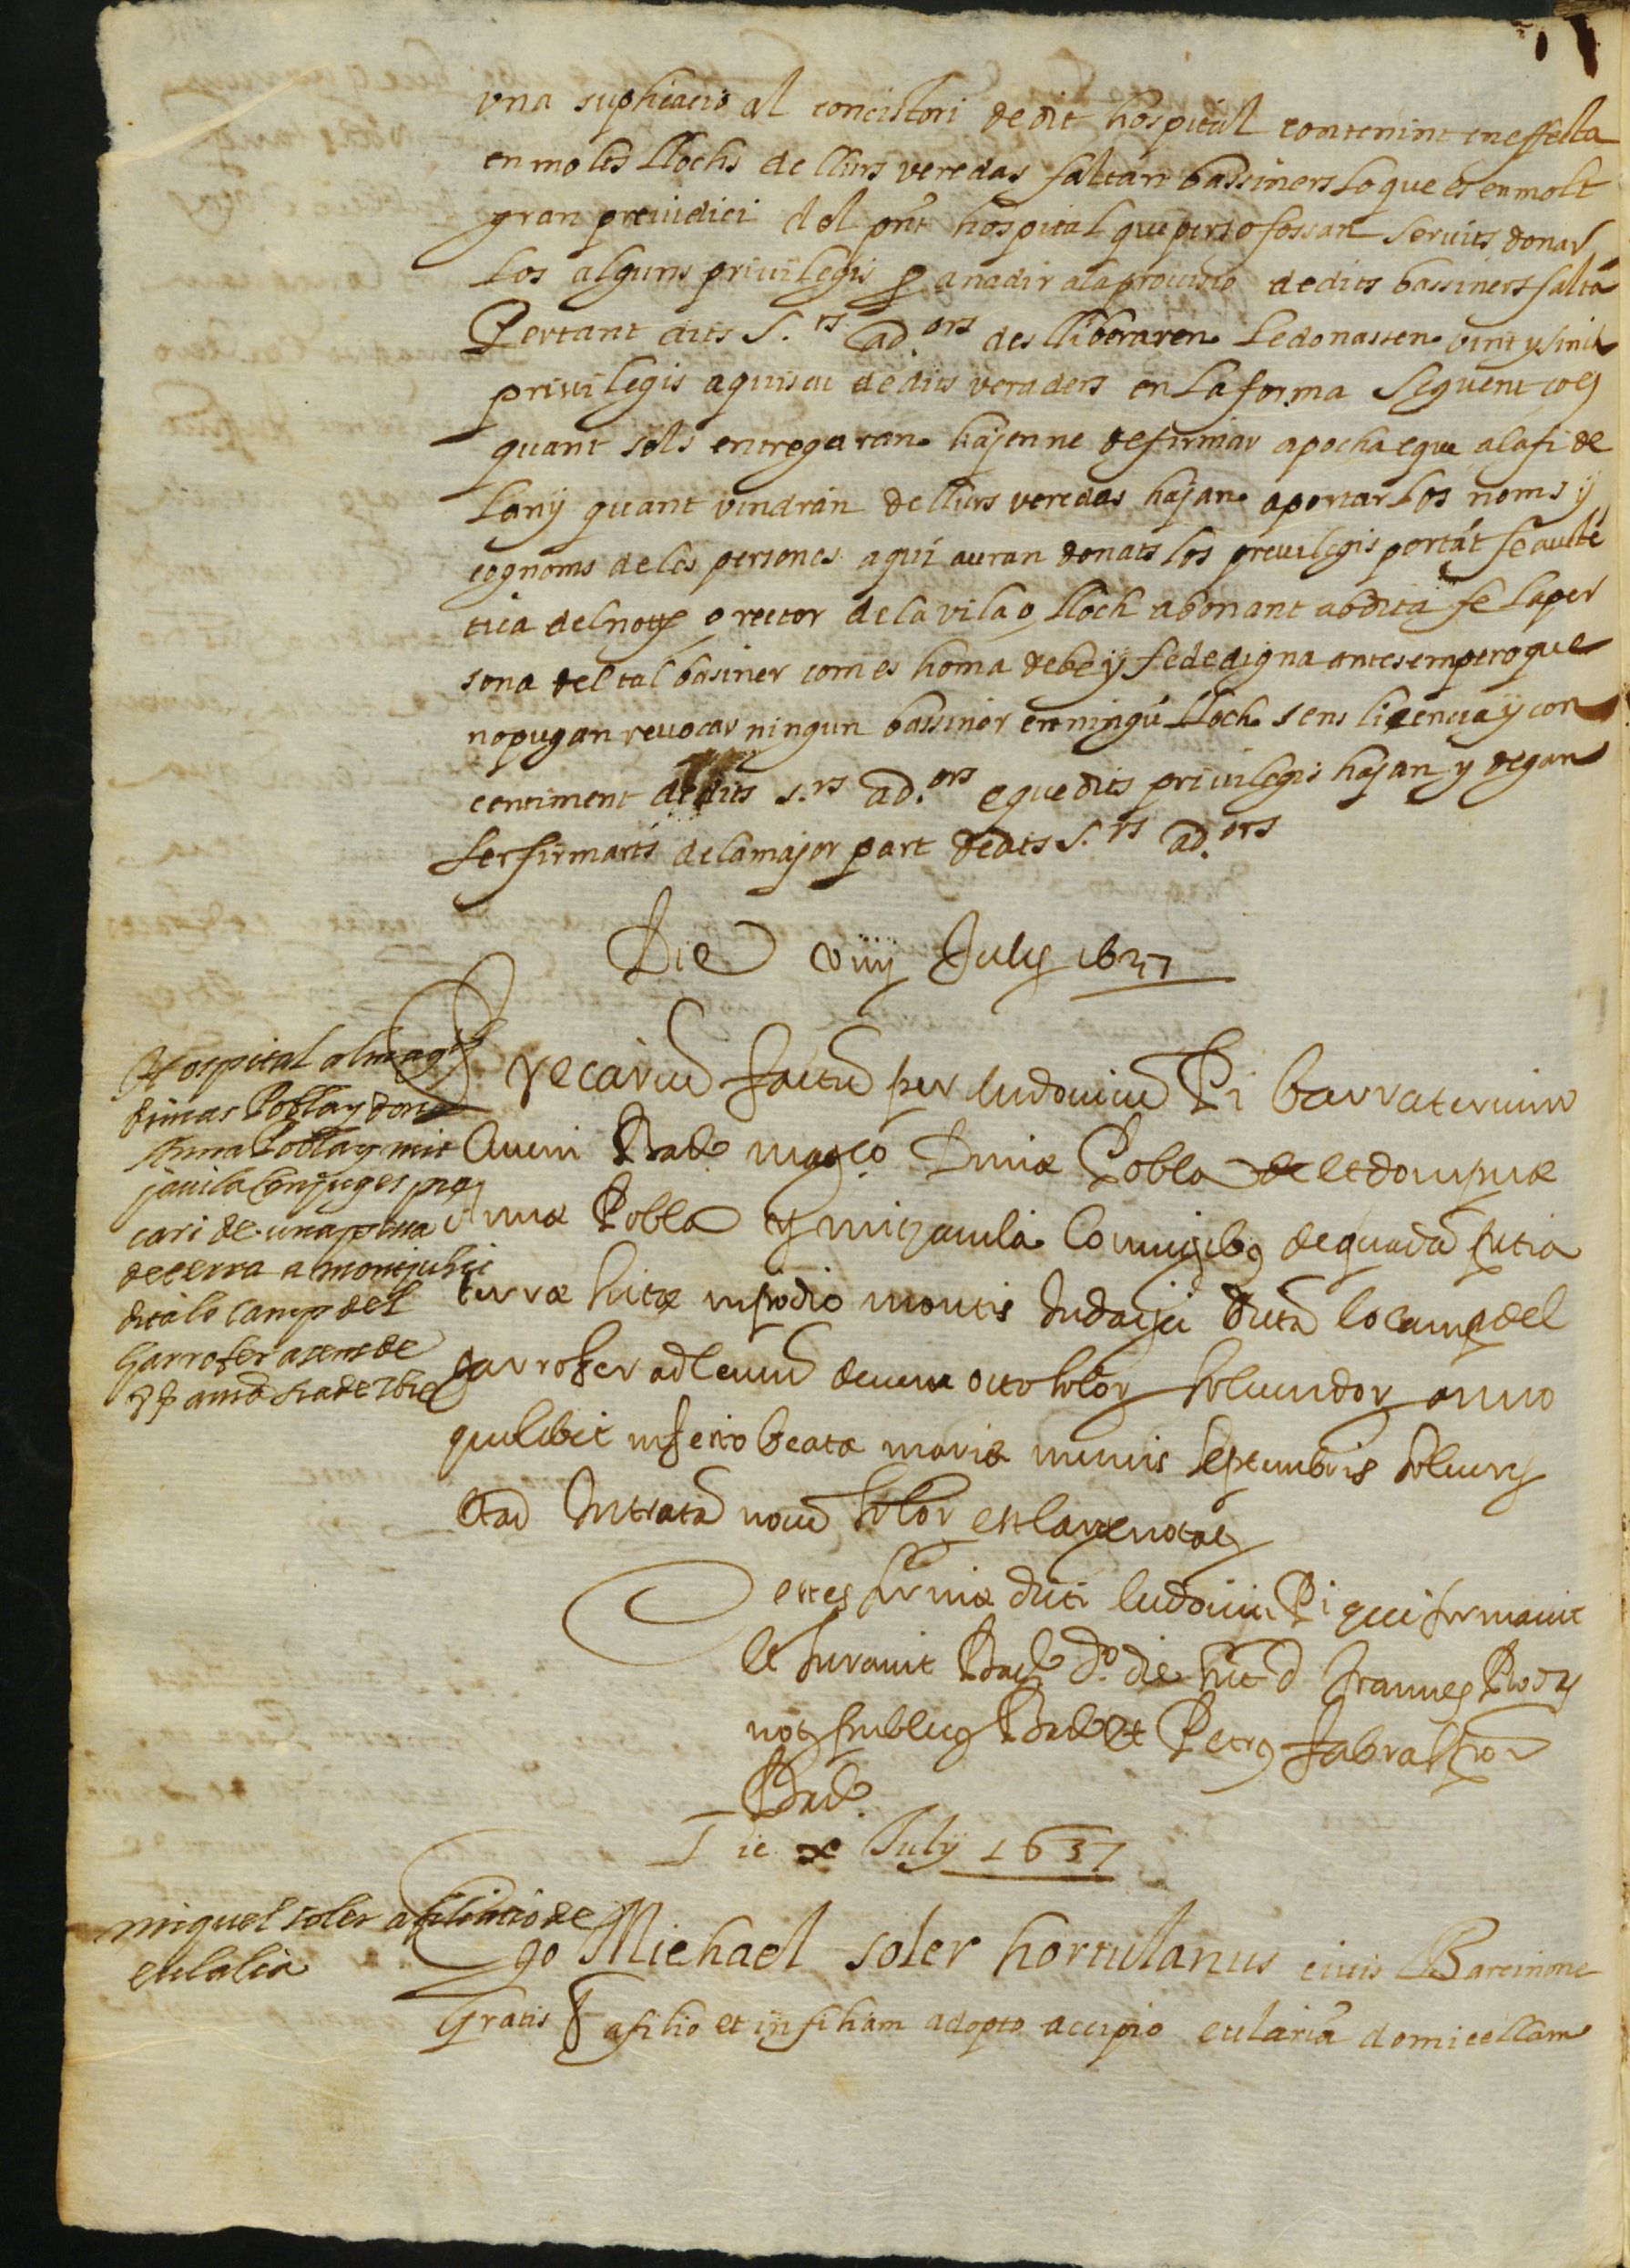 vna suplicacio al concistori de dit hospital contenint en effecta
en molts llochs de llurs veredas faltan bassiners lo que es en molt
gran preiudici del pnt hospital que perso fossan seruits donar
los alguns priuilegis p anadir a la prouisio de dits bassiners falta
Pertant dits S.rs ad.ors deslliberaren le donassen vint y sinch
priuilegis a quiscu de dits veraders en la forma seguent ço es
quant sels entregaran hajen ne de firmar apocha e que a la fi de
lany quant vindran de llurs veredas hajan aportar los noms y
cognoms de les persones a qui auran donats los preuilegis portat fe aute
tica del noty o rector de la vila o lloch abonant ab dita fe la per
sona del tal basiner com es homa de be y fededigna antes empero que
no pugan reuocar ningun bassiner en ningu lloch sens licencia y con
centiment de dits s.rs ad.ors e que dits priuilegis hajan y degan
ser firmats de la major part de dts S.rs ad.ors
Die viiij July 1637
Hospital al mag
dimas Pobla y dona
Anna Pobla y mit
jauila conjuges pre
cari de una pessa
de terra a monjuhic
dita lo camp del
Garrofer a sens de
precariu factu per Ludouicu Pi barraterium
ciuem Bar magco Dimæ Pobla de et dompnæ
Annæ Pobla y mitjauila coniugibus de quada petia
terræ sitæ in podio montis Judayci dicta lo camp del
garrofer ad censu decem octo solor soluendor anno
quolibet in festo beatæ mariæ mensis septembris
et ad intrata nouem solor est large notat
Testes firmæ dicti ludouici Pi qui firmauit
et Jurauit Bar do die sut d Joannes
not publicus Bar et Petrus Fabra
Bar
Die x July 1637
miquel soler afiliacio de
eulalia
Ego Michael soler hortulanus ciuis Barcinone
Gratis & afilio et in filiam adopto accipio eularia domicellam